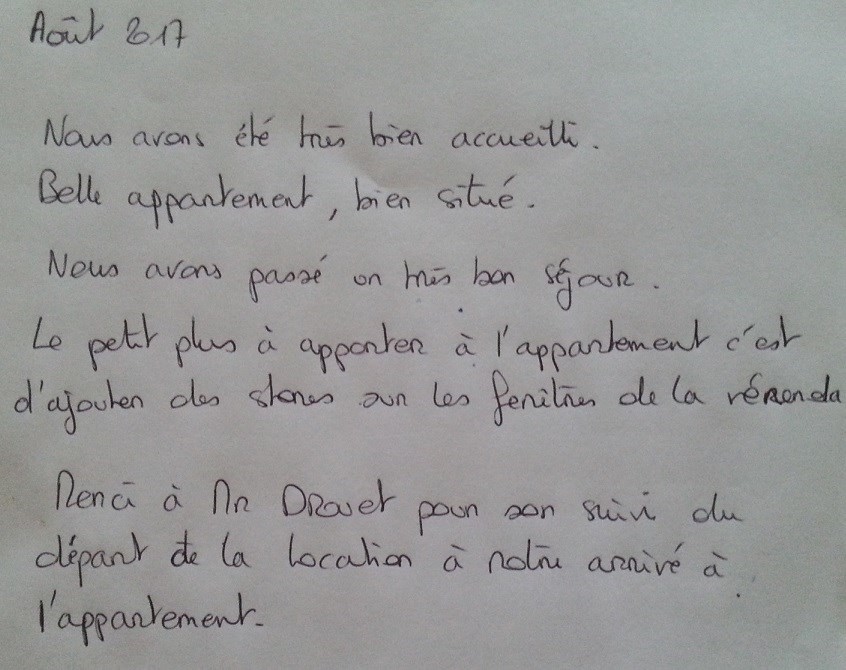 Août 2017
Nous avons été très bien accueilli.
Belle appartement, bien situé.
Nous avons passé un très bon séjour.
Le petit plus à apporter à l'appartement c'est
d'ajouter des stores sur les fenêtres de la véranda
Merci à Mr Drouet pour son suivi du
départ de la location à notre arrivé à
l'appartement.